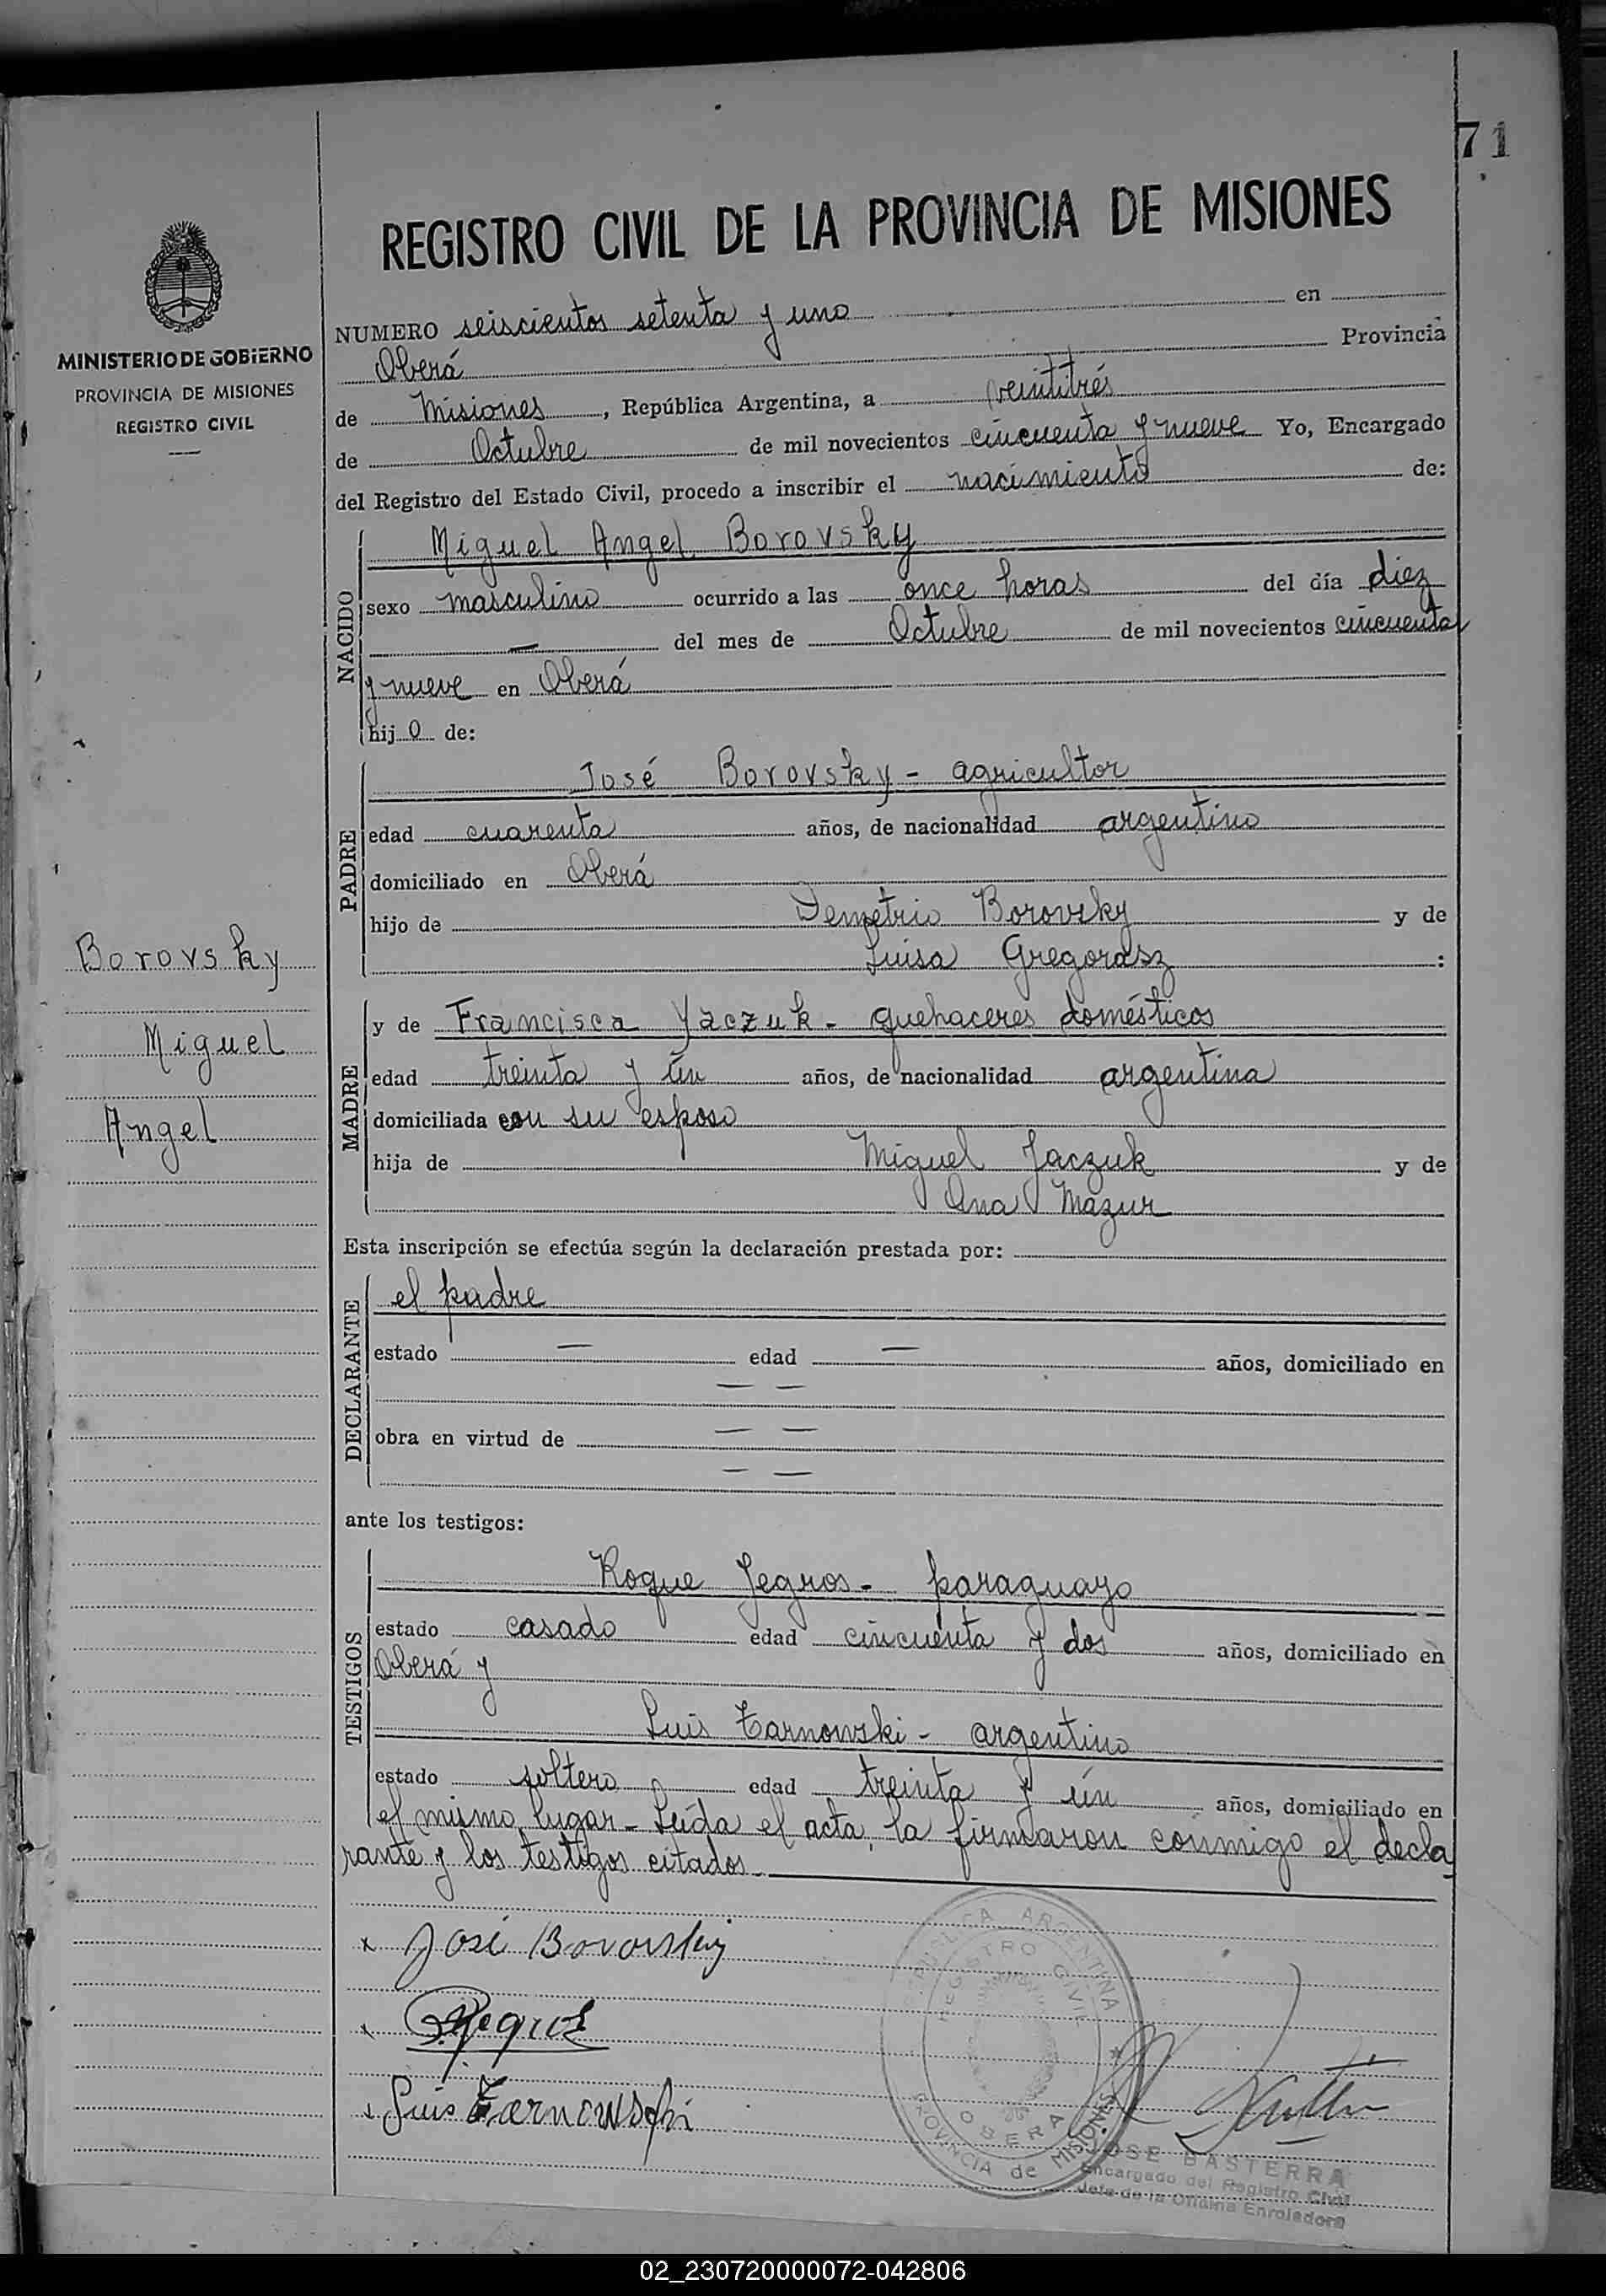 71
REGISTRO CIVIL DE LA PROVINCIA DE MISIONES
MINISTERIO DE GOBIERNO
PROVINCIA DE MISIONES
REGISTRO CIVIL
NUMERO seiscientos setenta y uno en
Oberá Provincia
de Misiones, República Argentina, a veintitrés
de Octubre de mil novecientos cincuenta y nueve Yo, Encargado
del Registro del Estado Civil, procedo a inscribir el nacimiento de:
NACIDO
Miguel Angel Borovsky
sexo masculino ocurrido a las once horas del día diez
— del mes de Octubre de mil novecientos cincuenta
y nueve en Oberá
hijo de:
PADRE
José Borovsky - agricultor
edad cuarenta años, de nacionalidad argentino
domiciliado en Oberá
hijo de Demetrio Borovsky y de
Luisa Gregorasz :
Borovsky
Miguel
Angel
MADRE
y de Francisca Yaczuk - quehaceres domésticos
edad treinta y ún años, de nacionalidad argentina
domiciliada con su esposo
hija de Miguel Jaczuk y de
Ana Mazur
Esta inscripción se efectúa según la declaración prestada por:
DECLARANTE
el padre
estado — edad — años, domiciliado en
— —
obra en virtud de — —
— —
ante los testigos:
TESTIGOS
Roque Jegros - paraguayo
estado casado edad cincuenta y dos años, domiciliado en
Oberá y
Luis Zarnowski - argentino
estado soltero edad treinta y ún años, domiciliado en
el mismo lugar - Leída el acta, la firmaron conmigo el decla
rante y los testigos citados
x José Borovsky
x
x Luis Zarnowski
REPUBLICA ARGENTINA
REGISTRO CIVIL
OBERA
PROVINCIA de MISIONES
JOSE BASTERRA
Encargado del Registro Civil
Jefe de la Oficina Enroladora
02_230720000072-042806